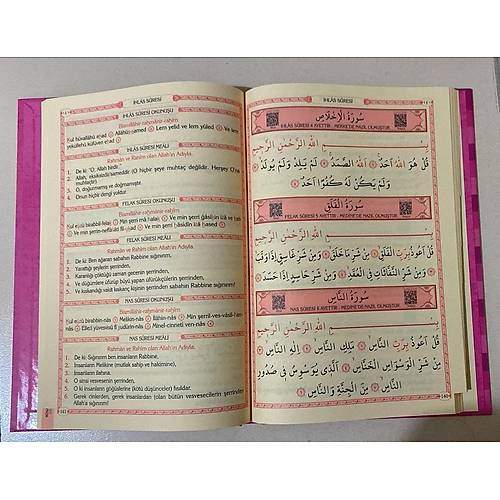 İHLÂS SÛRESİ
İHLÂS SÛRESİ OKUNUŞU
Bismillâhir-rahmânir-rahîm
Kul hüvallâhü ehad Allâhüs-samed Lem yelid ve lem yûled Ve lem
yekûllehû küfüven ehad
İHLÂS SÛRESİ MEÂLİ
Rahmân ve Rahîm olan Allah'ın Adıyla.
1. De ki: "O, Allah birdir."
2. Allah, eksiksizdir/sameddir (O hiçbir şeye muhtaç değildir. Herşey O'na
muhtaçtır)
3. O, doğurmamış ve doğmamıştır.
4. Onun hiçbir dengi yoktur.
FELAK SÛRESİ OKUNUŞU
Bismillâhir-rahmânir-rahîm
FELAK SÛRESİ MEÂLİ
Rahmân ve Rahîm olan Allah'ın Adıyla.
1. De ki: Ben ağaran sabahın Rabbine sığınırım,
2. Yarattığı şeylerin şerrinden,
3. Karanlığı çöktüğü zaman gecenin şerrinden,
4. Ve düğümlere üfürüp büyü yapan üfürükçülerin şerrinden,
5. Ve kıskandığı vakit kıskanç kişinin şerrinden sabahın Rabbine sığınırım!
NAS SÛRESİ OKUNUŞU
Bismillâhir-rahmânir-rahîm
NAS SÛRESİ MEÂLİ
Rahmân ve Rahîm olan Allah'ın Adıyla.
1. De ki: Sığınırım ben insanların Rabbine,
2. İnsanların Melikine (mutlak sahip ve hakimine),
3. İnsanların ilahına.
4. O sinsi vesvesenin şerrinden,
5. O ki insanların göğüslerine (kötü düşünceler) fısıldar.
6. Gerek cinlerden, gerek insanlardan (olan bütün vesvesecilerin şerrinden
Allah'a sığınırım!)
141
İHLÂS SÛRESİ
سُورَةُ الْاِخْلَاصِ
İHLÂS SÛRESİ 4 AYETTİR - MEKKE'DE NAZİL OLMUŞTUR.
بِسْمِ اللّٰهِ الرَّحْمٰنِ الرَّحِيمِ
قُلْ هُوَ اللّٰهُ اَحَدٌ اَللّٰهُ الصَّمَدُ لَمْ يَلِدْ وَلَمْ يُولَدْ
وَلَمْ يَكُنْ لَهُ كُفُوًا اَحَدٌ
سُورَةُ الْفَلَقِ
FELAK SÛRESİ 5 AYETTİR - MEDİNE'DE NAZİL OLMUŞTUR.
بِسْمِ اللّٰهِ الرَّحْمٰنِ الرَّحِيمِ
قُلْ اَعُوذُ بِرَبِّ الْفَلَقِ مِنْ شَرِّ مَا خَلَقَ وَمِنْ شَرِّ غَاسِقٍ اِذَا وَقَبَ
وَمِنْ شَرِّ النَّفَّاثَاتِ فِي الْعُقَدِ وَمِنْ شَرِّ حَاسِدٍ اِذَا حَسَدَ
سُورَةُ النَّاسِ
NAS SÛRESİ 6 AYETTİR - MEDİNE'DE NAZİL OLMUŞTUR.
بِسْمِ اللّٰهِ الرَّحْمٰنِ الرَّحِيمِ
قُلْ اَعُوذُ بِرَبِّ النَّاسِ مَلِكِ النَّاسِ اِلٰهِ النَّاسِ
مِنْ شَرِّ الْوَسْوَاسِ الْخَنَّاسِ اَلَّذِي يُوَسْوِسُ فِي صُدُورِ
النَّاسِ مِنَ الْجِنَّةِ وَالنَّاسِ
140